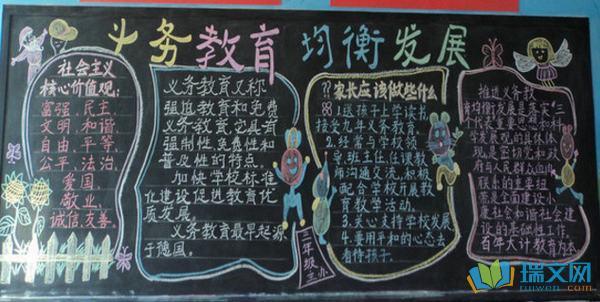 义务教育 均衡发展
社会主义
核心价值观：
富强、民主、
文明、和谐、
自由、平等、
公平、法治、
爱国、
敬业、
诚信、友善。
义务教育又称
强迫教育和免费
义务教育，它具有
强制性、免费性和
普及性的特点。
加快学校标准
化建设促进教育优
质发展。
义务教育最早起源
于德国。
三年级
家长应该做些什么
1.送孩子上学读书
接受九年义务教育。
2.经常与学校领
导、班主任、任课教
师沟通交流，积极
配合学校开展教
育教学活动。
3.关心支持学校发展。
4.要用平和的心态去
看待孩子。
推进义务教
育均衡发展是落实“三
个代表”重要思想和科
学发展观的具体体
现，是密切党和政
府与人民群众血肉
联系的
是全面建设小
康社会和谐社会建
设的基础性工作。
百年大计教育为本
瑞文网
ruiwen.com